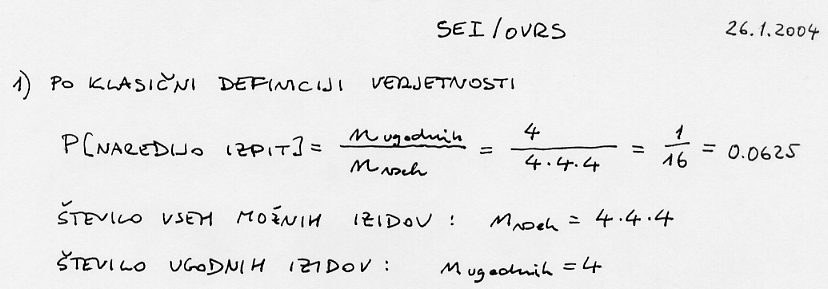 SEI/OVRS 26.1.2004
1) PO KLASIČNI DEFINICIJI VERJETNOSTI
P[NAREDIJO IZPIT] = n ugodnih / n vseh = 4 / 4·4·4 = 1/16 = 0.0625
ŠTEVILO VSEH MOŽNIH IZIDOV : n vseh = 4·4·4
ŠTEVILO UGODNIH IZIDOV : n ugodnih = 4